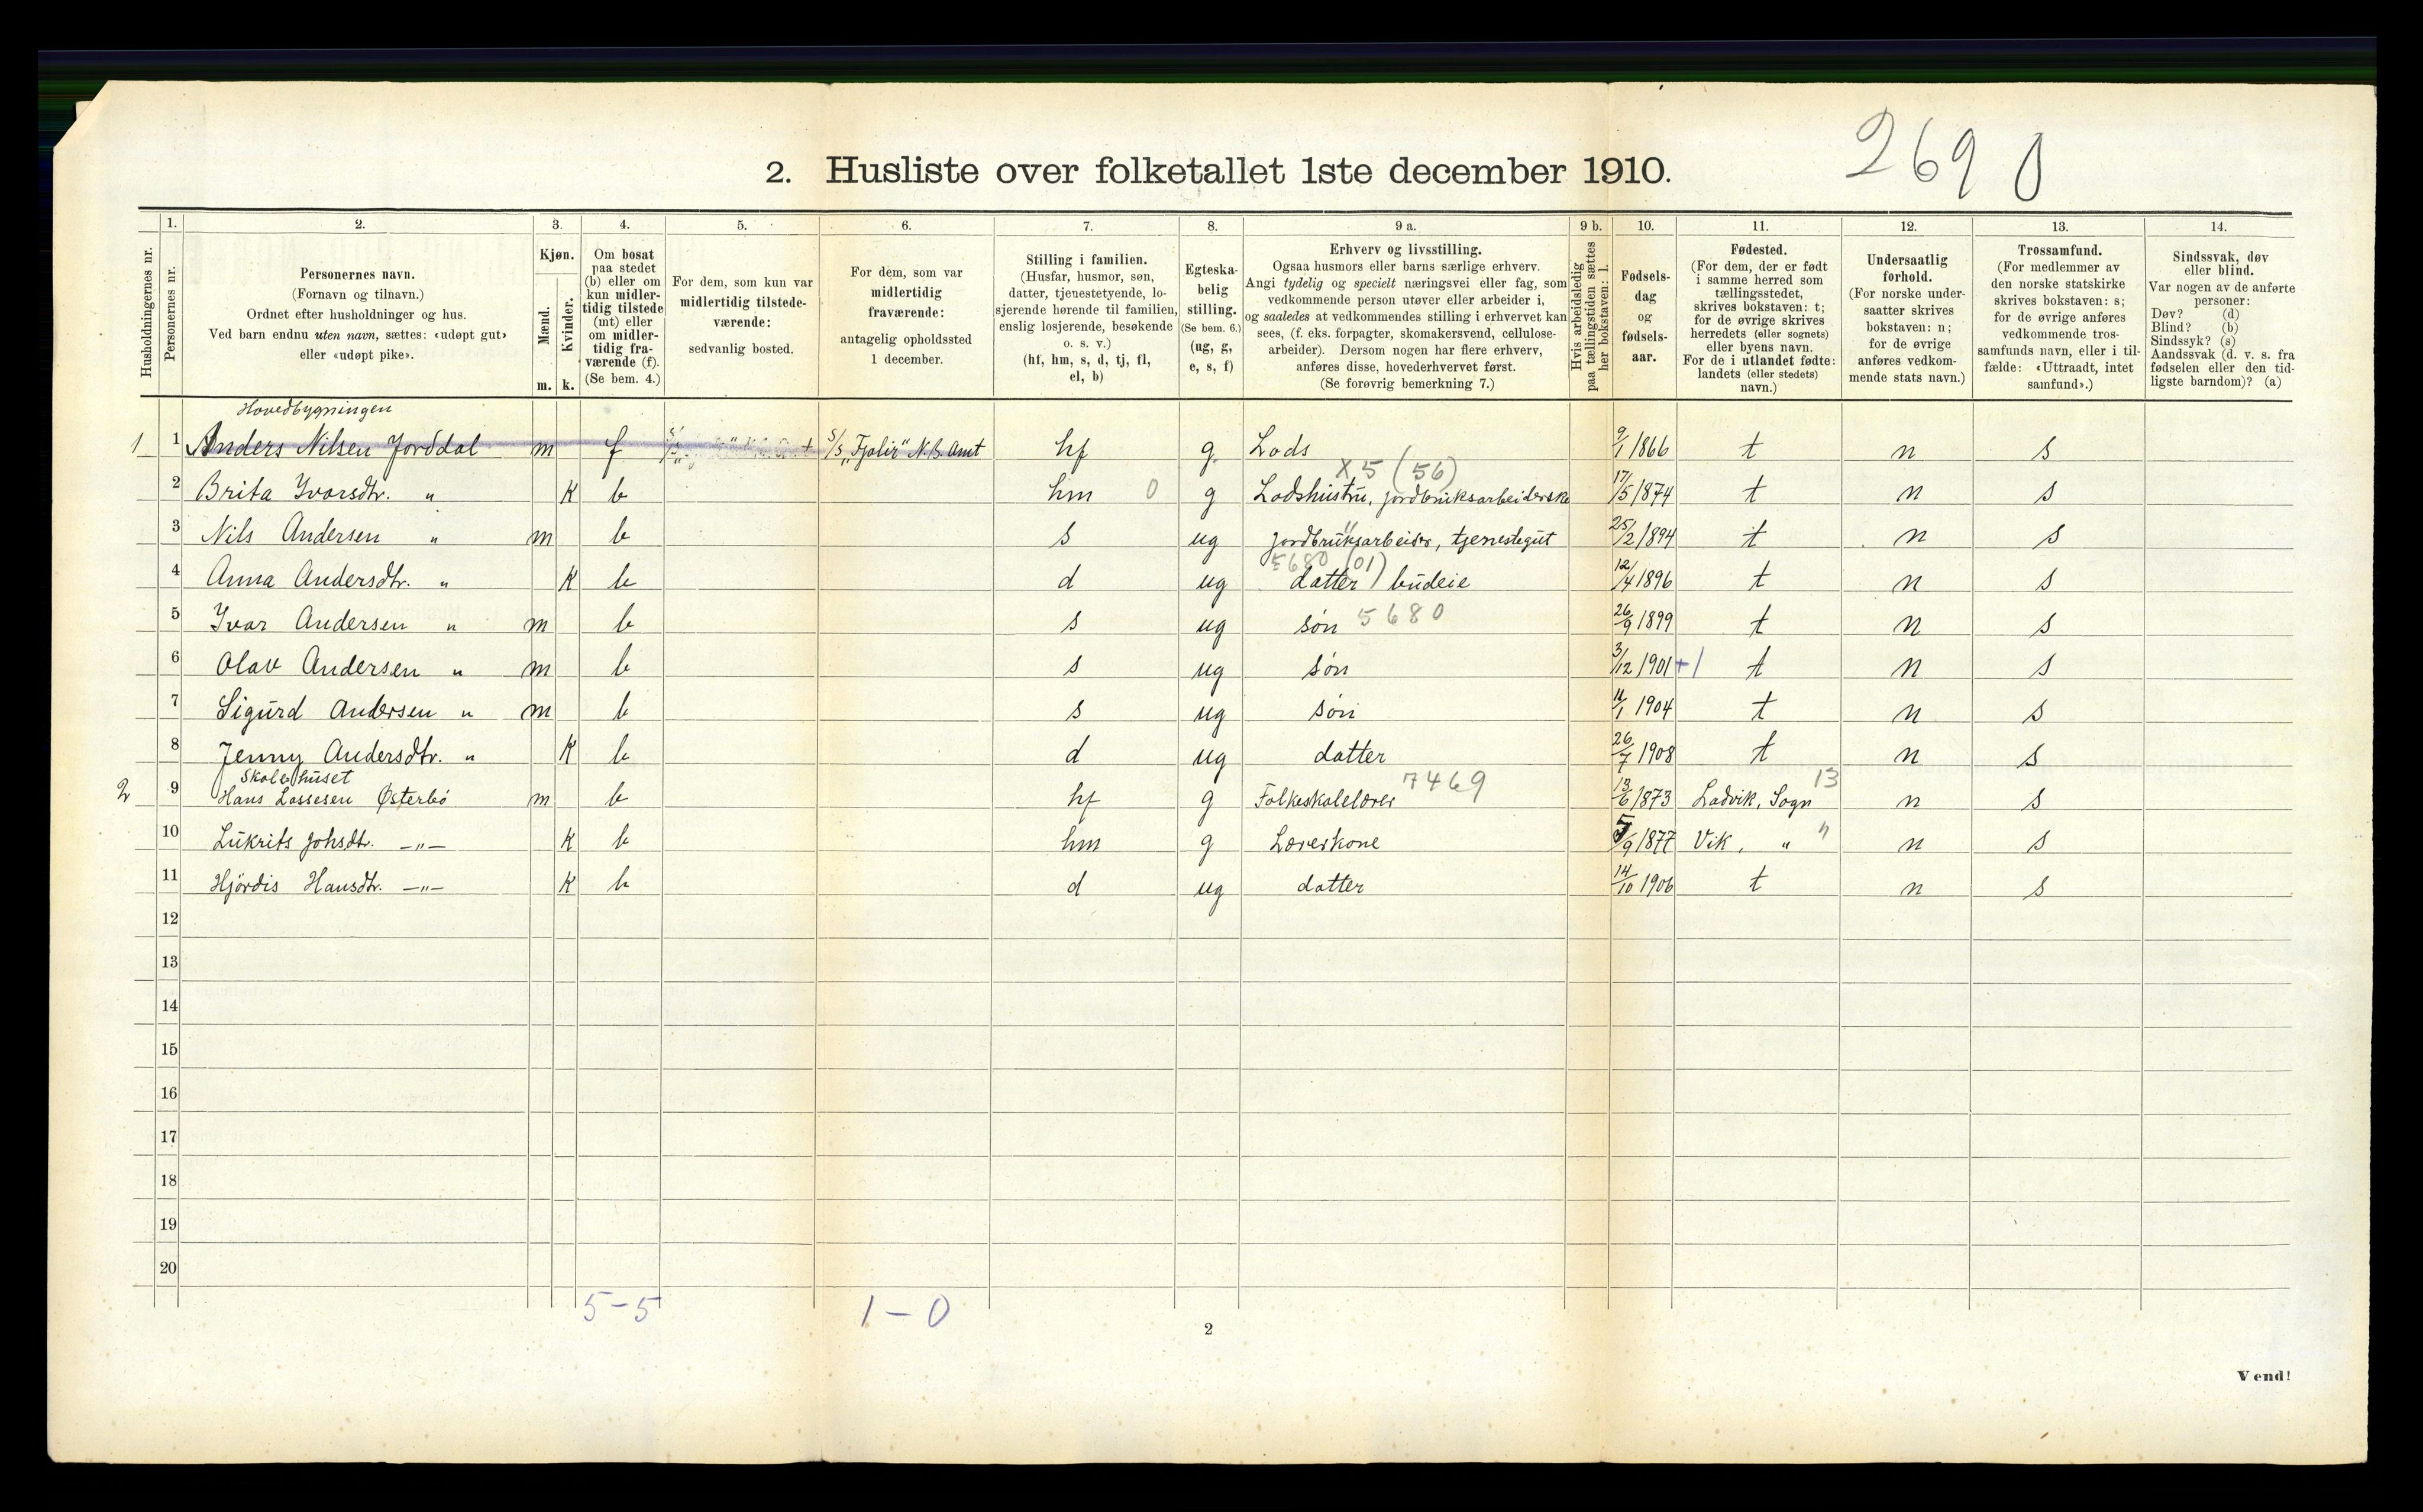 2690
2. Husliste over folketallet 1ste december 1910.
Husholdningernes nr.
1.
Personernes nr.
2.
Personernes navn.
(Fornavn og tilnavn.)
Ordnet efter husholdninger og hus.
Ved barn endnu uten navn, sættes: «udøpt gut»
eller «udøpt pike».
3.
Kjøn.
Mænd.
m.
Kvinder.
k.
4.
Om bosat
paa stedet
(b) eller om
kun midler-
tidig tilstede
(mt) eller
om midler-
tidig fra-
værende (f).
(Se bem. 4.)
5.
For dem, som kun var
midlertidig tilstede-
værende:
sedvanlig bosted.
6.
For dem, som var
midlertidig
fraværende:
antagelig opholdssted
1 december.
7.
Stilling i familien.
(Husfar, husmor, søn,
datter, tjenestetyende, lo-
sjerende hørende til familien,
enslig losjerende, besøkende
o. s. v.)
(hf, hm, s, d, tj, fl,
el, b)
8.
Egteska-
belig
stilling.
(Se bem. 6.)
(ug, g,
e, s, f)
9 a.
Erhverv og livsstilling.
Ogsaa husmors eller barns særlige erhverv.
Angi tydelig og specielt næringsvei eller fag, som
vedkommende person utøver eller arbeider i,
og saaledes at vedkommendes stilling i erhvervet kan
sees, (f. eks. forpagter, skomakersvend, cellulose-
arbeider). Dersom nogen har flere erhverv,
anføres disse, hovederhvervet først.
(Se forøvrig bemerkning 7.)
9 b.
Hvis arbeidsledig
paa tællingstiden sættes
her bokstaven: l.
10.
Fødsels-
dag
og
fødsels-
aar.
11.
Fødested.
(For dem, der er født
i samme herred som
tællingsstedet,
skrives bokstaven: t;
for de øvrige skrives
herredets (eller sognets)
eller byens navn.
For de i utlandet fødte:
landets (eller stedets)
navn.)
12.
Undersaatlig
forhold.
(For norske under-
saatter skrives
bokstaven: n;
for de øvrige
anføres vedkom-
mende stats navn.)
13.
Trossamfund.
(For medlemmer av
den norske statskirke
skrives bokstaven: s;
for de øvrige anføres
vedkommende tros-
samfunds navn, eller i til-
fælde: «Uttraadt, intet
samfund».)
14.
Sindssvak, døv
eller blind.
Var nogen av de anførte
personer:
Døv? (d)
Blind? (b)
Sindssyk? (s)
Aandssvak (d. v. s. fra
fødselen eller den tid-
ligste barndom)? (a)
Hovedbygningen
1 1 Anders Nilsen Jorddal m f S/S „Fjalir" N.B. Amt hf g Lods 9/1 1866 t n s
X5 (56)
2 Brita Ivarsdtr. " K b hm 0 g Lodshustru, jordbruksarbeiderske 17/5 1874 t n s
3 Nils Andersen " m b s ug jordbruksarbeider, tjenestegut 25/2 1894 t n s
5680 (01)
4 Anna Andersdtr. " K b d ug datter budeie 12/4 1896 t n s
5 Ivar Andersen " m b s ug søn 5680 26/9 1899 t n s
6 Olav Andersen " m b s ug søn 3/12 1901 +1 t n s
7 Sigurd Andersen " m b s ug søn 11/1 1904 t n s
8 Jenny Andersdtr. " K b d ug datter 26/7 1908 t n s
Skolehuset
2 9 Hans Lassesen Østerbö m b hf g Folkeskolelærer 7469 13/6 1873 Ladvik, Sogn 13 n s
10 Lukrits Johsdtr. —"— K b hm g Lærerkone 5/9 1877 Vik, " " n s
11 Hjördis Hansdtr. —"— K b d ug datter 14/10 1906 t n s
12
13
14
15
16
17
18
19
20
5-5 1-0
2
Vend!